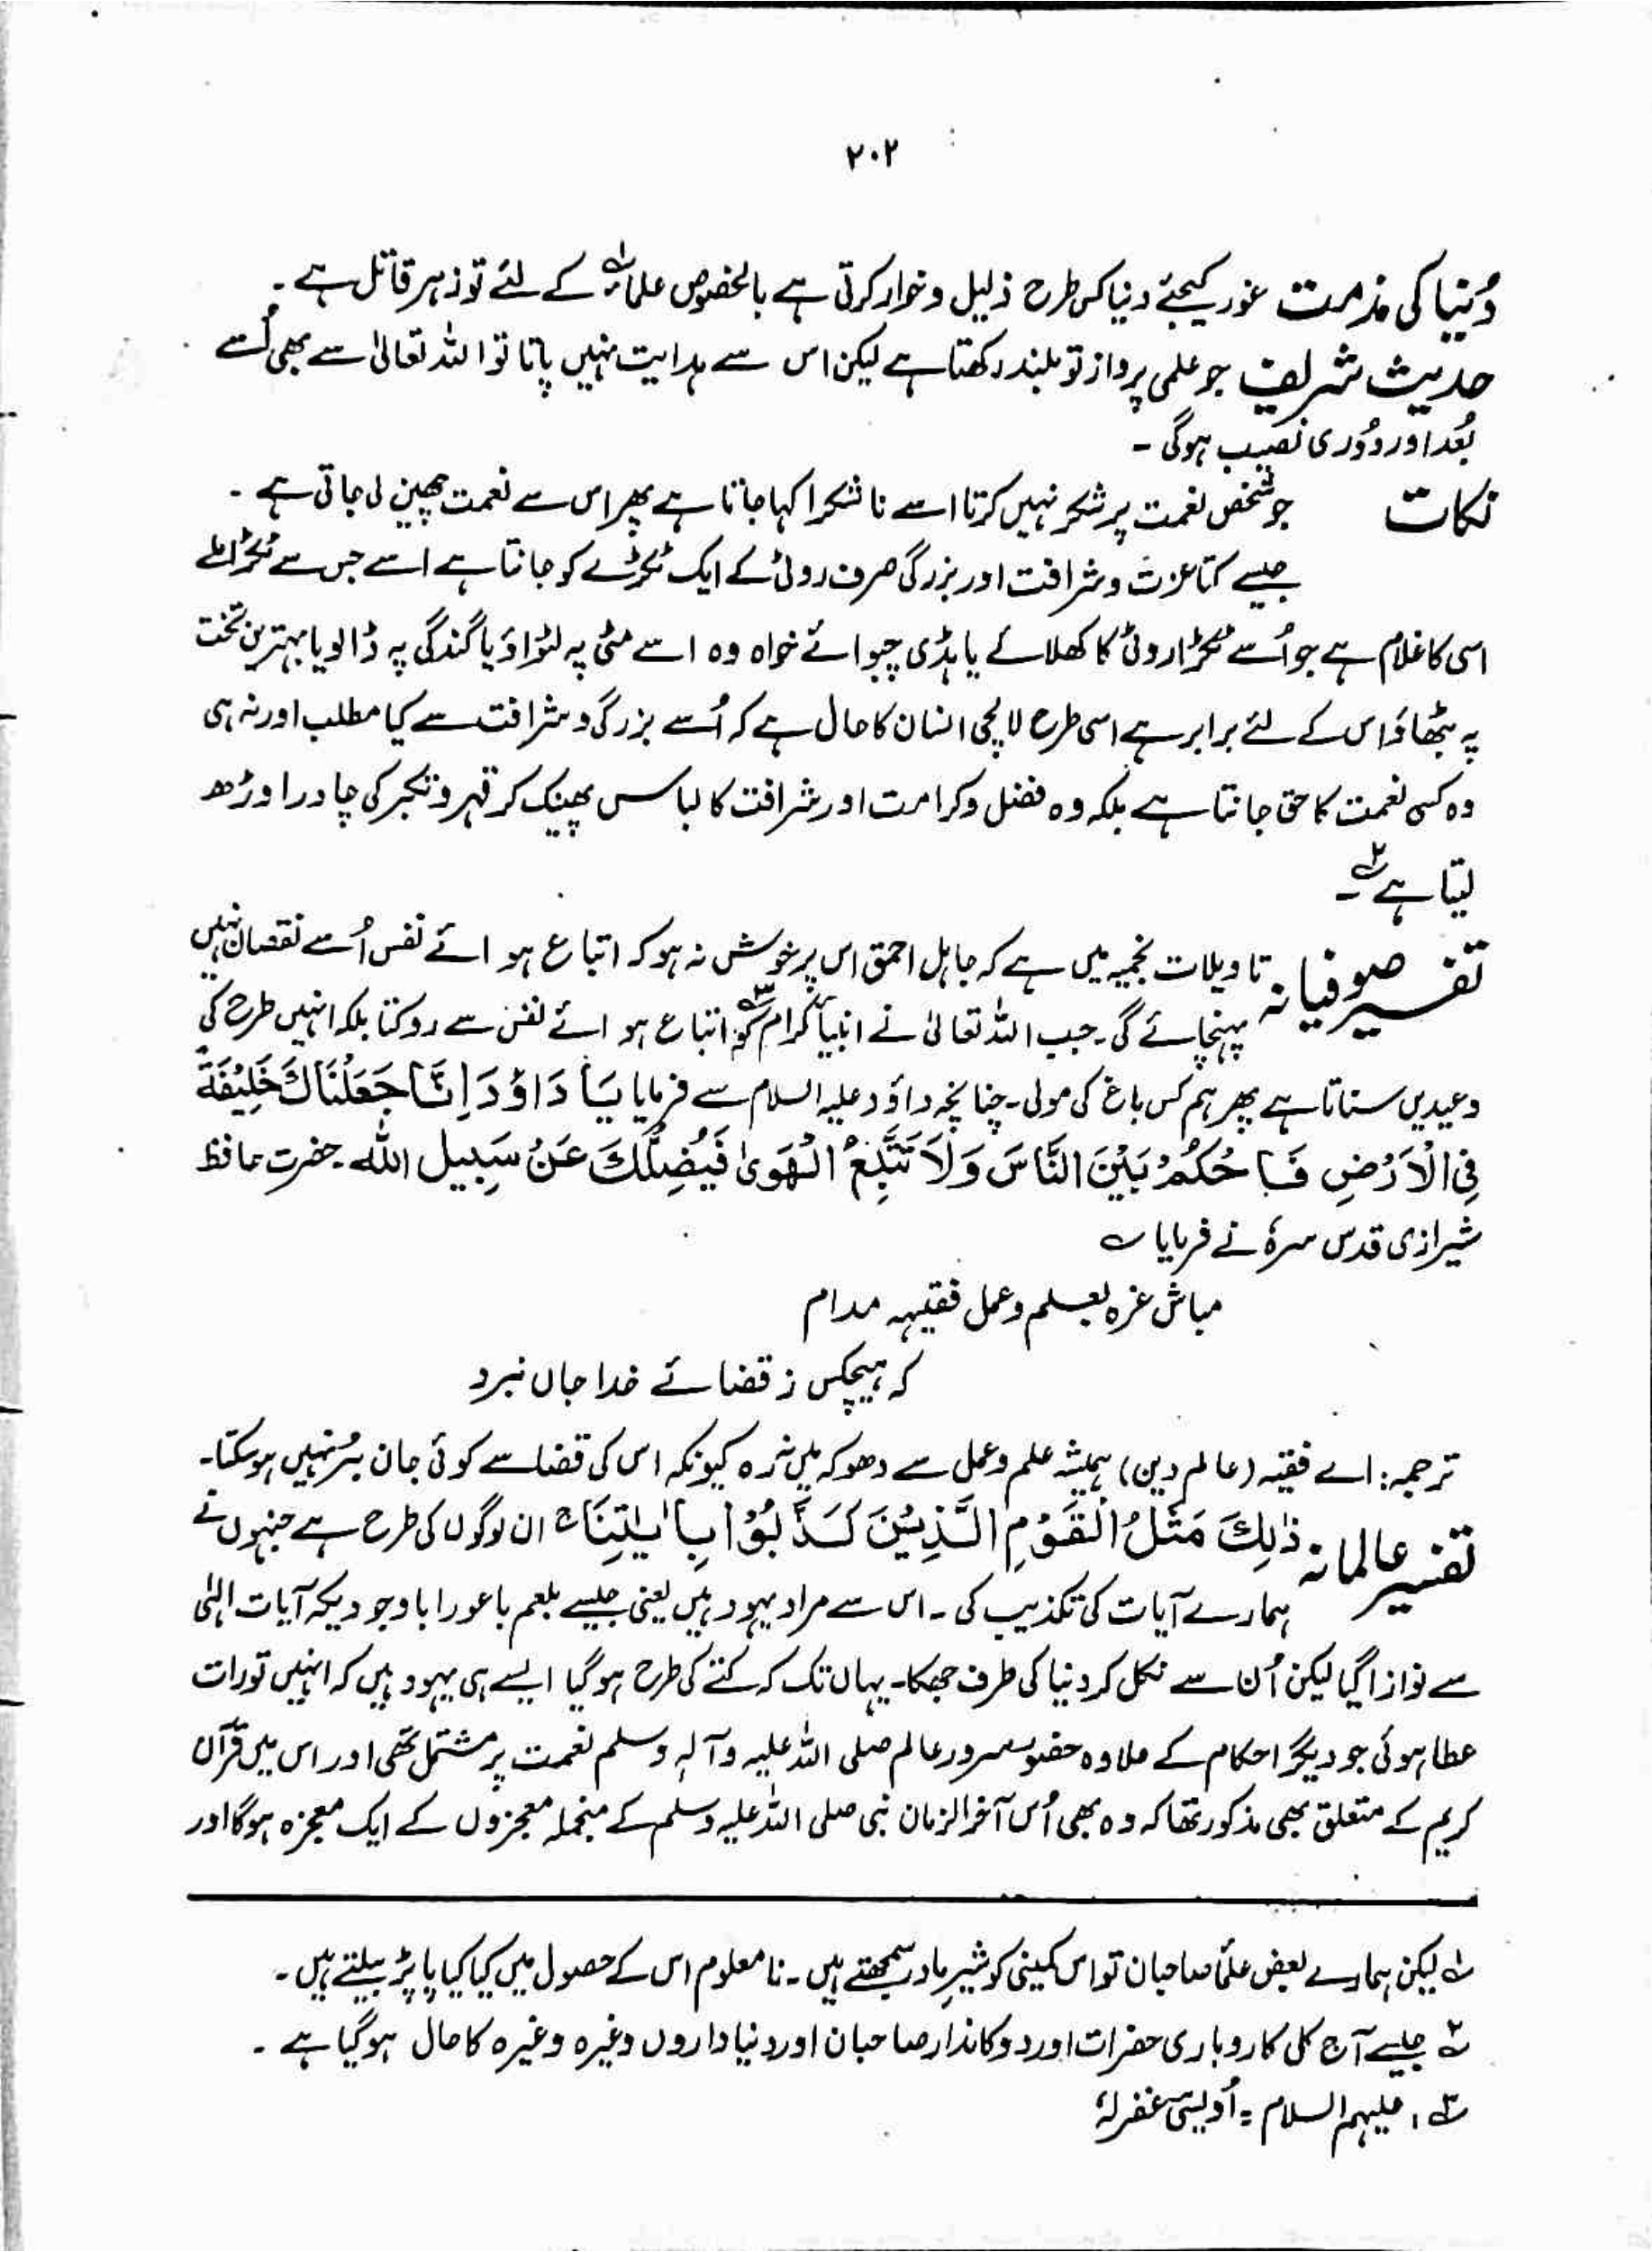 ۲۰۲
دُنیا کی مذمت غور کیجئے دنیا کس طرح ذلیل و خوار کرتی ہے بالخصوص علماء کے لئے تو زہر قاتل ہے ۔
حدیث شریف جو علمی پرواز تو بلند رکھتا ہے لیکن اس سے ہدایت نہیں پاتا تو اللہ تعالیٰ سے بھی اُسے
بُعد اور دُوری نصیب ہوگی ۔
نکات جو شخص نعمت پر شکر نہیں کرتا اسے ناشکرا کہا جاتا ہے پھر اس سے نعمت چھین لی جاتی ہے ۔
جیسے کتا عزت و شرافت اور بزرگی صرف روٹی کے ایک ٹکڑے کو جانتا ہے اسے جس سے ٹکڑا ملے
اسی کا غلام ہے جو اُسے ٹکڑا روٹی کا کھلائے یا ہڈی چبوائے خواہ وہ اسے مٹی پہ لٹواؤ یا گندگی پہ ڈالو یا بہترین تخت
پہ بٹھاؤ اس کے لئے برابر ہے اسی طرح لالچی انسان کا حال ہے کہ اُسے بزرگی و شرافت سے کیا مطلب اور نہ ہی
وہ کسی نعمت کا حق جانتا ہے بلکہ وہ فضل و کرامت اور شرافت کا لباس پھینک کر قہر و تکبر کی چادر اوڑھ
لیتا ہے ۲؎ ۔
تفسیر صوفیانہ تاویلات نجمیہ میں ہے کہ جاہل احمق اس پر خوش نہ ہو کہ اتباع ہوائے نفس اُسے نقصان نہیں
پہنچائے گی ۔ جب اللہ تعالیٰ نے انبیاء کرام ۳؎ کو اتباع ہوائے نفس سے روکتا بلکہ انہیں طرح کی
وعیدیں سناتا ہے پھر ہم کس باغ کی مولی ۔ چنانچہ داؤد علیہ السلام سے فرمایا يَا دَاوٗدَ اِنَّا جَعَلْنَاكَ خَلِيْفَةً
فِى الْاَرْضِ فَاحْكُمْ بَيْنَ النَّاسَ وَلَا تَتَّبِعْ الْهَوىٰ فَيُضِلَّكَ عَنْ سَبِيل اللّٰه ۔ حضرت حافظ
شیرازی قدس سرہٗ نے فرمایا ؎
مباش غرہ بعلم و عمل فقیہہ مدام
کہ ہیچکس ز قضائے خدا جاں نبرد
ترجمہ : اے فقیہ (عالم دین) ہمیشہ علم و عمل سے دھوکہ میں نہ رہ کیونکہ اس کی قضا سے کوئی جان بَر نہیں ہو سکتا ۔
تفسیر عالمانہ ذٰلِكَ مَثَلُ الْقَوْمِ الَّذِيْنَ كَذَّبُوْا بِاٰيٰتِنَا ج ان لوگوں کی طرح ہے جنہوں نے
ہمارے آیات کی تکذیب کی ۔ اس سے مراد یہود ہیں یعنی جیسے بلعم باعورا باوجودیکہ آیات الہٰی
سے نوازا گیا لیکن اُن سے نکل کر دنیا کی طرف جھکا ۔ یہاں تک کہ کتے کی طرح ہو گیا ایسے ہی یہود ہیں کہ انہیں تورات
عطا ہوئی جو دیگر احکام کے علاوہ حضور سرور عالم صلی اللہ علیہ وآلہٖ وسلم نعمت پر مشتمل تھی اور اس میں قرآن
کریم کے متعلق بھی مذکور تھا کہ وہ بھی اُس آخر الزمان نبی صلی اللہ علیہ وسلم کے منجملہ معجزوں کے ایک معجزہ ہوگا اور
۱؎ لیکن ہمارے بعض علماء صاحبان تو اس کمینی کو شیرِ مادر سمجھتے ہیں ۔ نامعلوم اس کے حصول میں کیا کیا پاپڑ بیلتے ہیں ۔
۲؎ جیسے آج کل کاروباری حضرات اور دوکاندار صاحبان اور دنیا داروں وغیرہ وغیرہ کا حال ہو گیا ہے ۔
۳؎ ، علیہم السلام = اُویسی غفرلہٗ